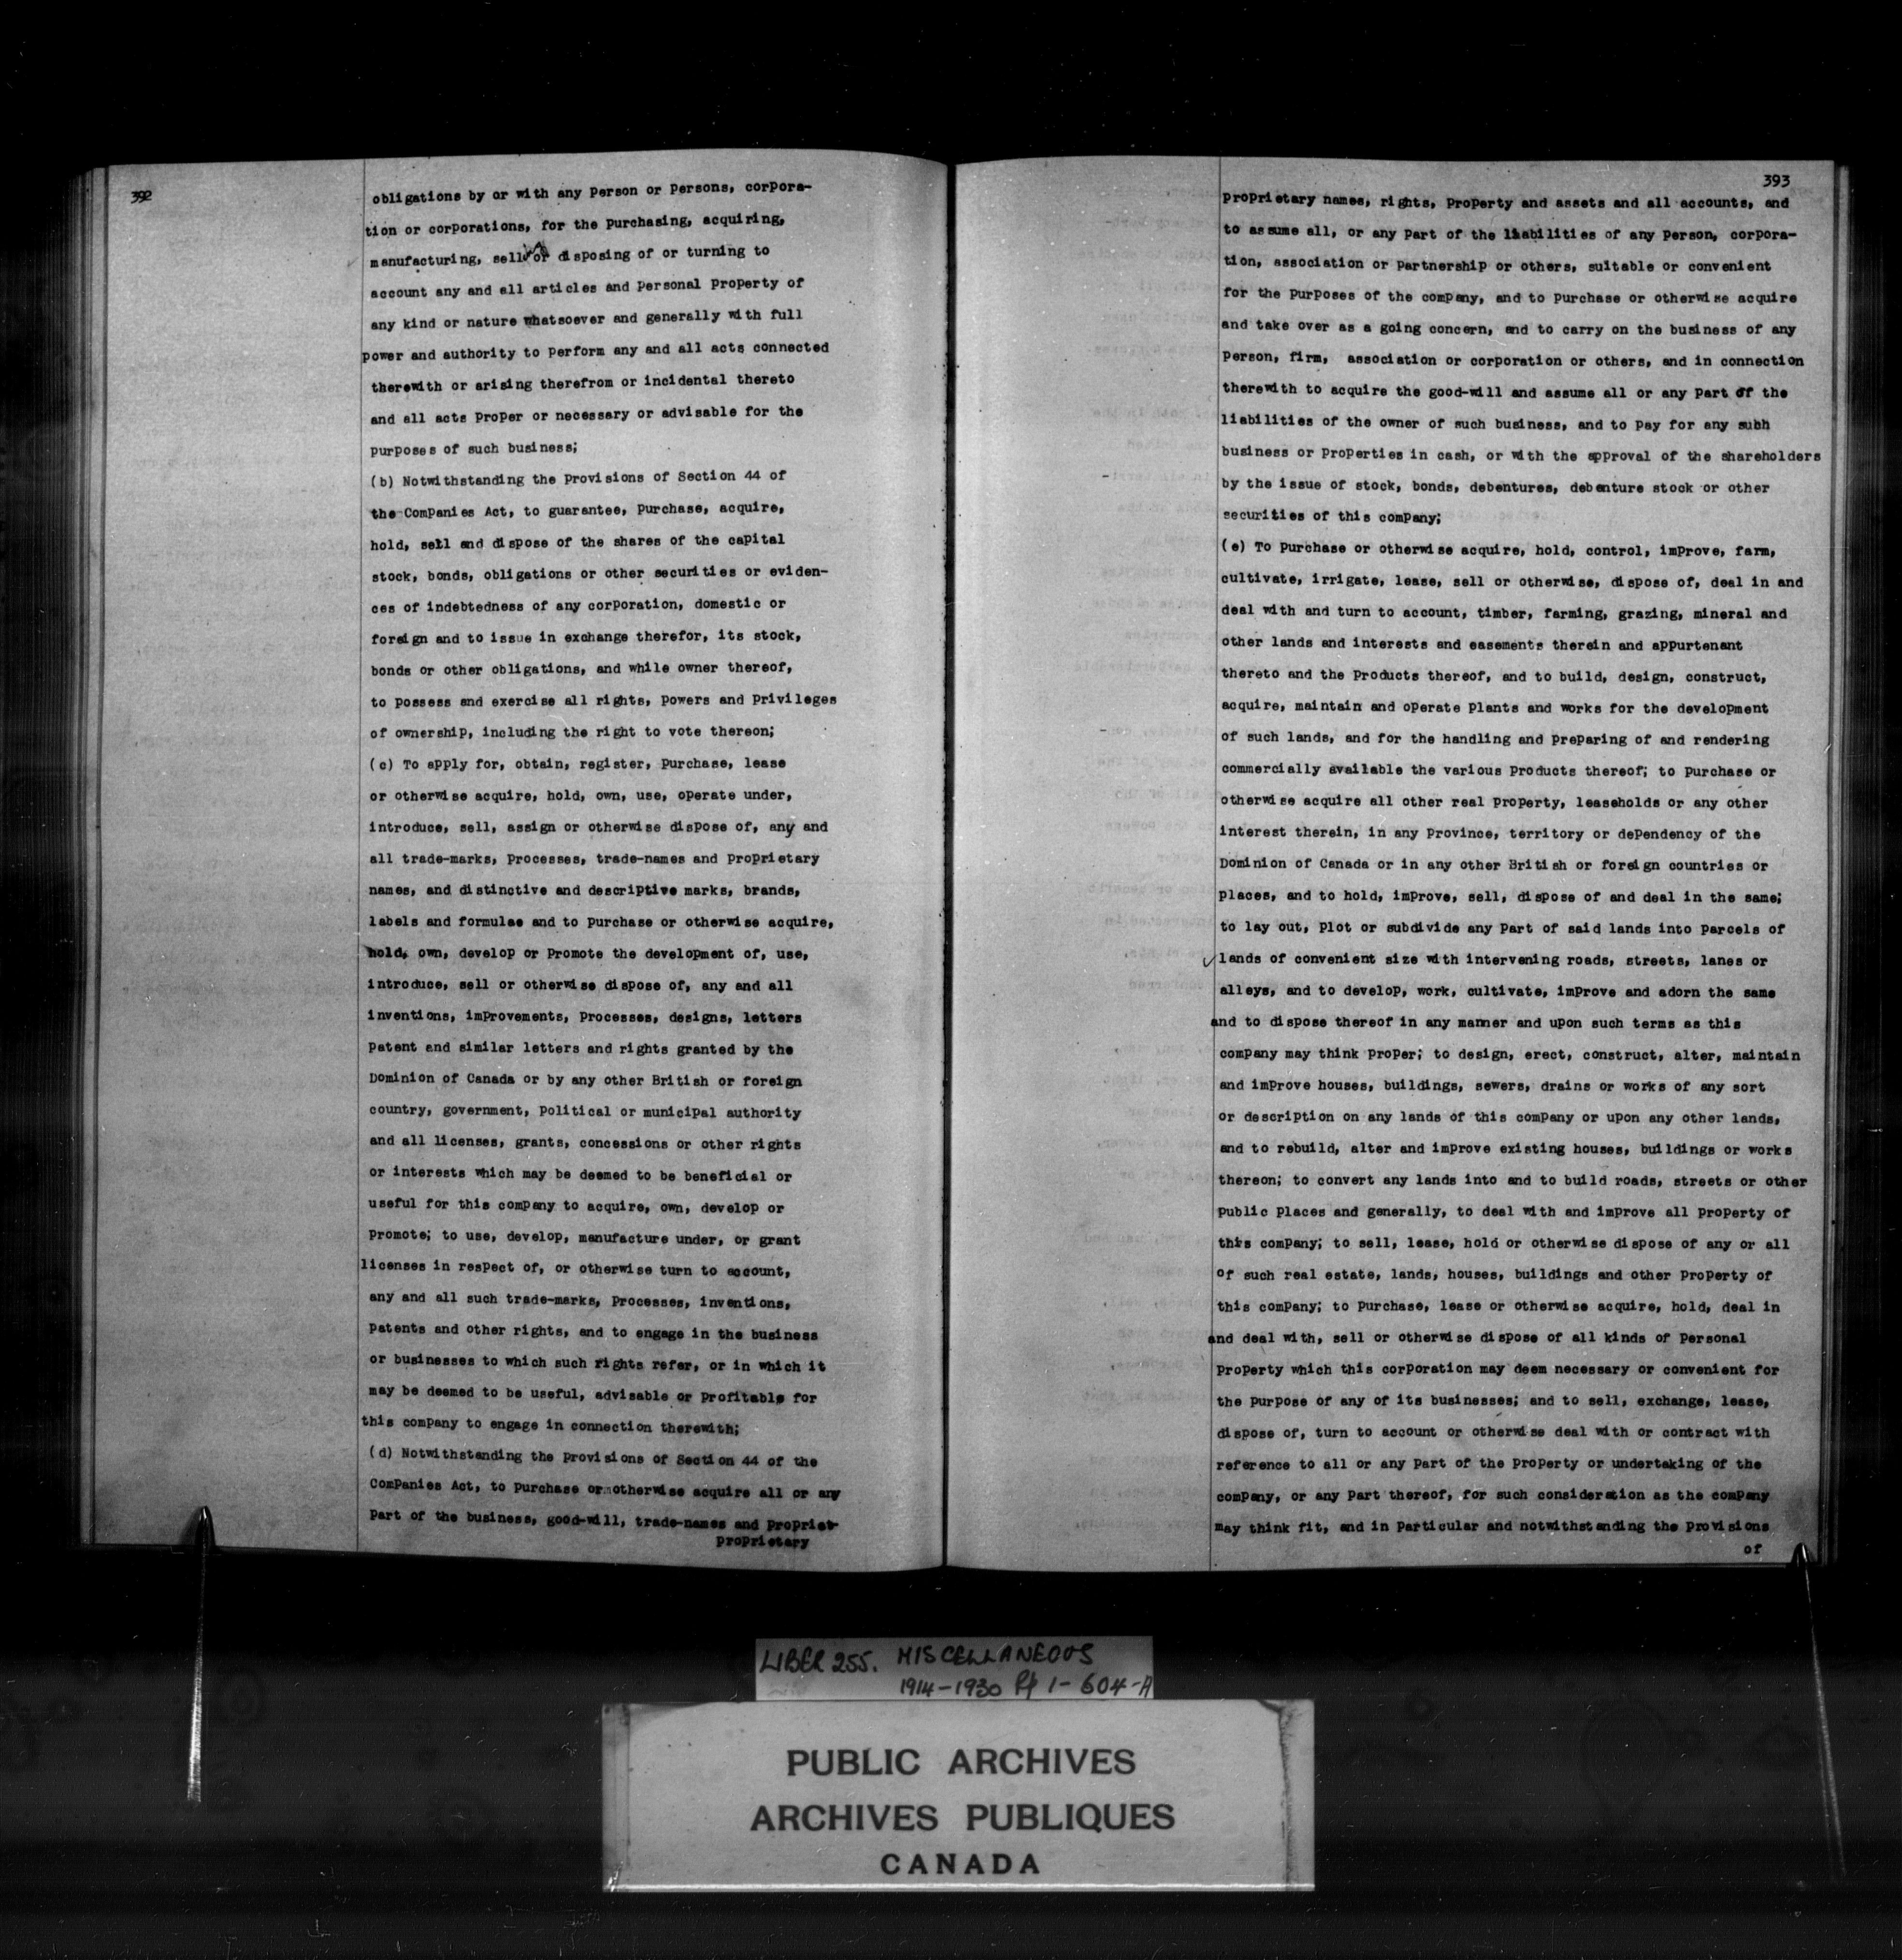 392
obligations by or with any person or persons, corpora-
tion or corporations, for the purchasing, acquiring,
manufacturing, sell or disposing of or turning to
account any and all articles and personal property of
any kind or nature whatsoever and generally with full
power and authority to perform any and all acts connected
therewith or arising therefrom or incidental thereto
and all acts proper or necessary or advisable for the
purposes of such business;
(b) Notwithstanding the provisions of Section 44 of
the Companies Act, to guarantee, purchase, acquire,
hold, sell and dispose of the shares of the capital
stock, bonds, obligations or other securities or eviden-
ces of indebtedness of any corporation, domestic or
foreign and to issue in exchange therefor, its stock,
bonds or other obligations, and while owner thereof,
to possess and exercise all rights, powers and privileges
of ownership, including the right to vote thereon;
(c) To apply for, obtain, register, purchase, lease
or otherwise acquire, hold, own, use, operate under,
introduce, sell, assign or otherwise dispose of, any and
all trade-marks, processes, trade-names and proprietary
names, and distinctive and descriptive marks, brands,
labels and formulae and to purchase or otherwise acquire,
hold, own, develop or promote the development of, use,
introduce, sell or otherwise dispose of, any and all
inventions, improvements, processes, designs, letters
patent and similar letters and rights granted by the
Dominion of Canada or by any other British or foreign
country, government, political or municipal authority
and all licenses, grants, concessions or other rights
or interests which may be deemed to be beneficial or
useful for this company to acquire, own, develop or
promote; to use, develop, manufacture under, or grant
licenses in respect of, or otherwise turn to account,
any and all such trade-marks, processes, inventions,
patents and other rights, and to engage in the business
or businesses to which such rights refer, or in which it
may be deemed to be useful, advisable or profitable for
this company to engage in connection therewith;
(d) Notwithstanding the provisions of Section 44 of the
Companies Act, to purchase or otherwise acquire all or any
part of the business, good-will, trade-names and propriet-
proprietary
393
proprietary names, rights, property and assets and all accounts, and
to assume all, or any part of the liabilities of any person, corpora-
tion, association or partnership or others, suitable or convenient
for the purposes of the company, and to purchase or otherwise acquire
and take over as a going concern, and to carry on the business of any
person, firm, association or corporation or others, and in connection
therewith to acquire the good-will and assume all or any part of the
liabilities of the owner of such business, and to pay for any subh
business or properties in cash, or with the approval of the shareholders
by the issue of stock, bonds, debentures, debenture stock or other
securities of this company;
(e) To purchase or otherwise acquire, hold, control, improve, farm,
cultivate, irrigate, lease, sell or otherwise, dispose of, deal in and
deal with and turn to account, timber, farming, grazing, mineral and
other lands and interests and easements therein and appurtenant
thereto and the products thereof, and to build, design, construct,
acquire, maintain and operate plants and works for the development
of such lands, and for the handling and preparing of and rendering
commercially available the various products thereof; to purchase or
otherwise acquire all other real property, leaseholds or any other
interest therein, in any province, territory or dependency of the
Dominion of Canada or in any other British or foreign countries or
places, and to hold, improve, sell, dispose of and deal in the same;
to lay out, plot or subdivide any part of said lands into parcels of
lands of convenient size with intervening roads, streets, lanes or
alleys, and to develop, work, cultivate, improve and adorn the same
and to dispose thereof in any manner and upon such terms as this
company may think proper; to design, erect, construct, alter, maintain
and improve houses, buildings, sewers, drains or works of any sort
or description on any lands of this company or upon any other lands,
and to rebuild, alter and improve existing houses, buildings or works
thereon; to convert any lands into and to build roads, streets or other
public places and generally, to deal with and improve all property of
this company; to sell, lease, hold or otherwise dispose of any or all
of such real estate, lands, houses, buildings and other property of
this company; to purchase, lease or otherwise acquire, hold, deal in
and deal with, sell or otherwise dispose of all kinds of personal
property which this corporation may deem necessary or convenient for
the purpose of any of its businesses; and to sell, exchange, lease,
dispose of, turn to account or otherwise deal with or contract with
reference to all or any part of the property or undertaking of the
company, or any part thereof, for such consideration as the company
may think fit, and in particular and notwithstanding the provisions
of
LIBER 255. MISCELLANEOUS
1914-1930 Pp 1-604-A
PUBLIC ARCHIVES
ARCHIVES PUBLIQUES
CANADA